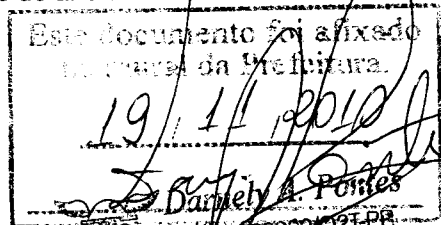 Este documento foi afixado
no mural da Prefeitura.
19 / 11 / 2010
Daniely A. Pontes